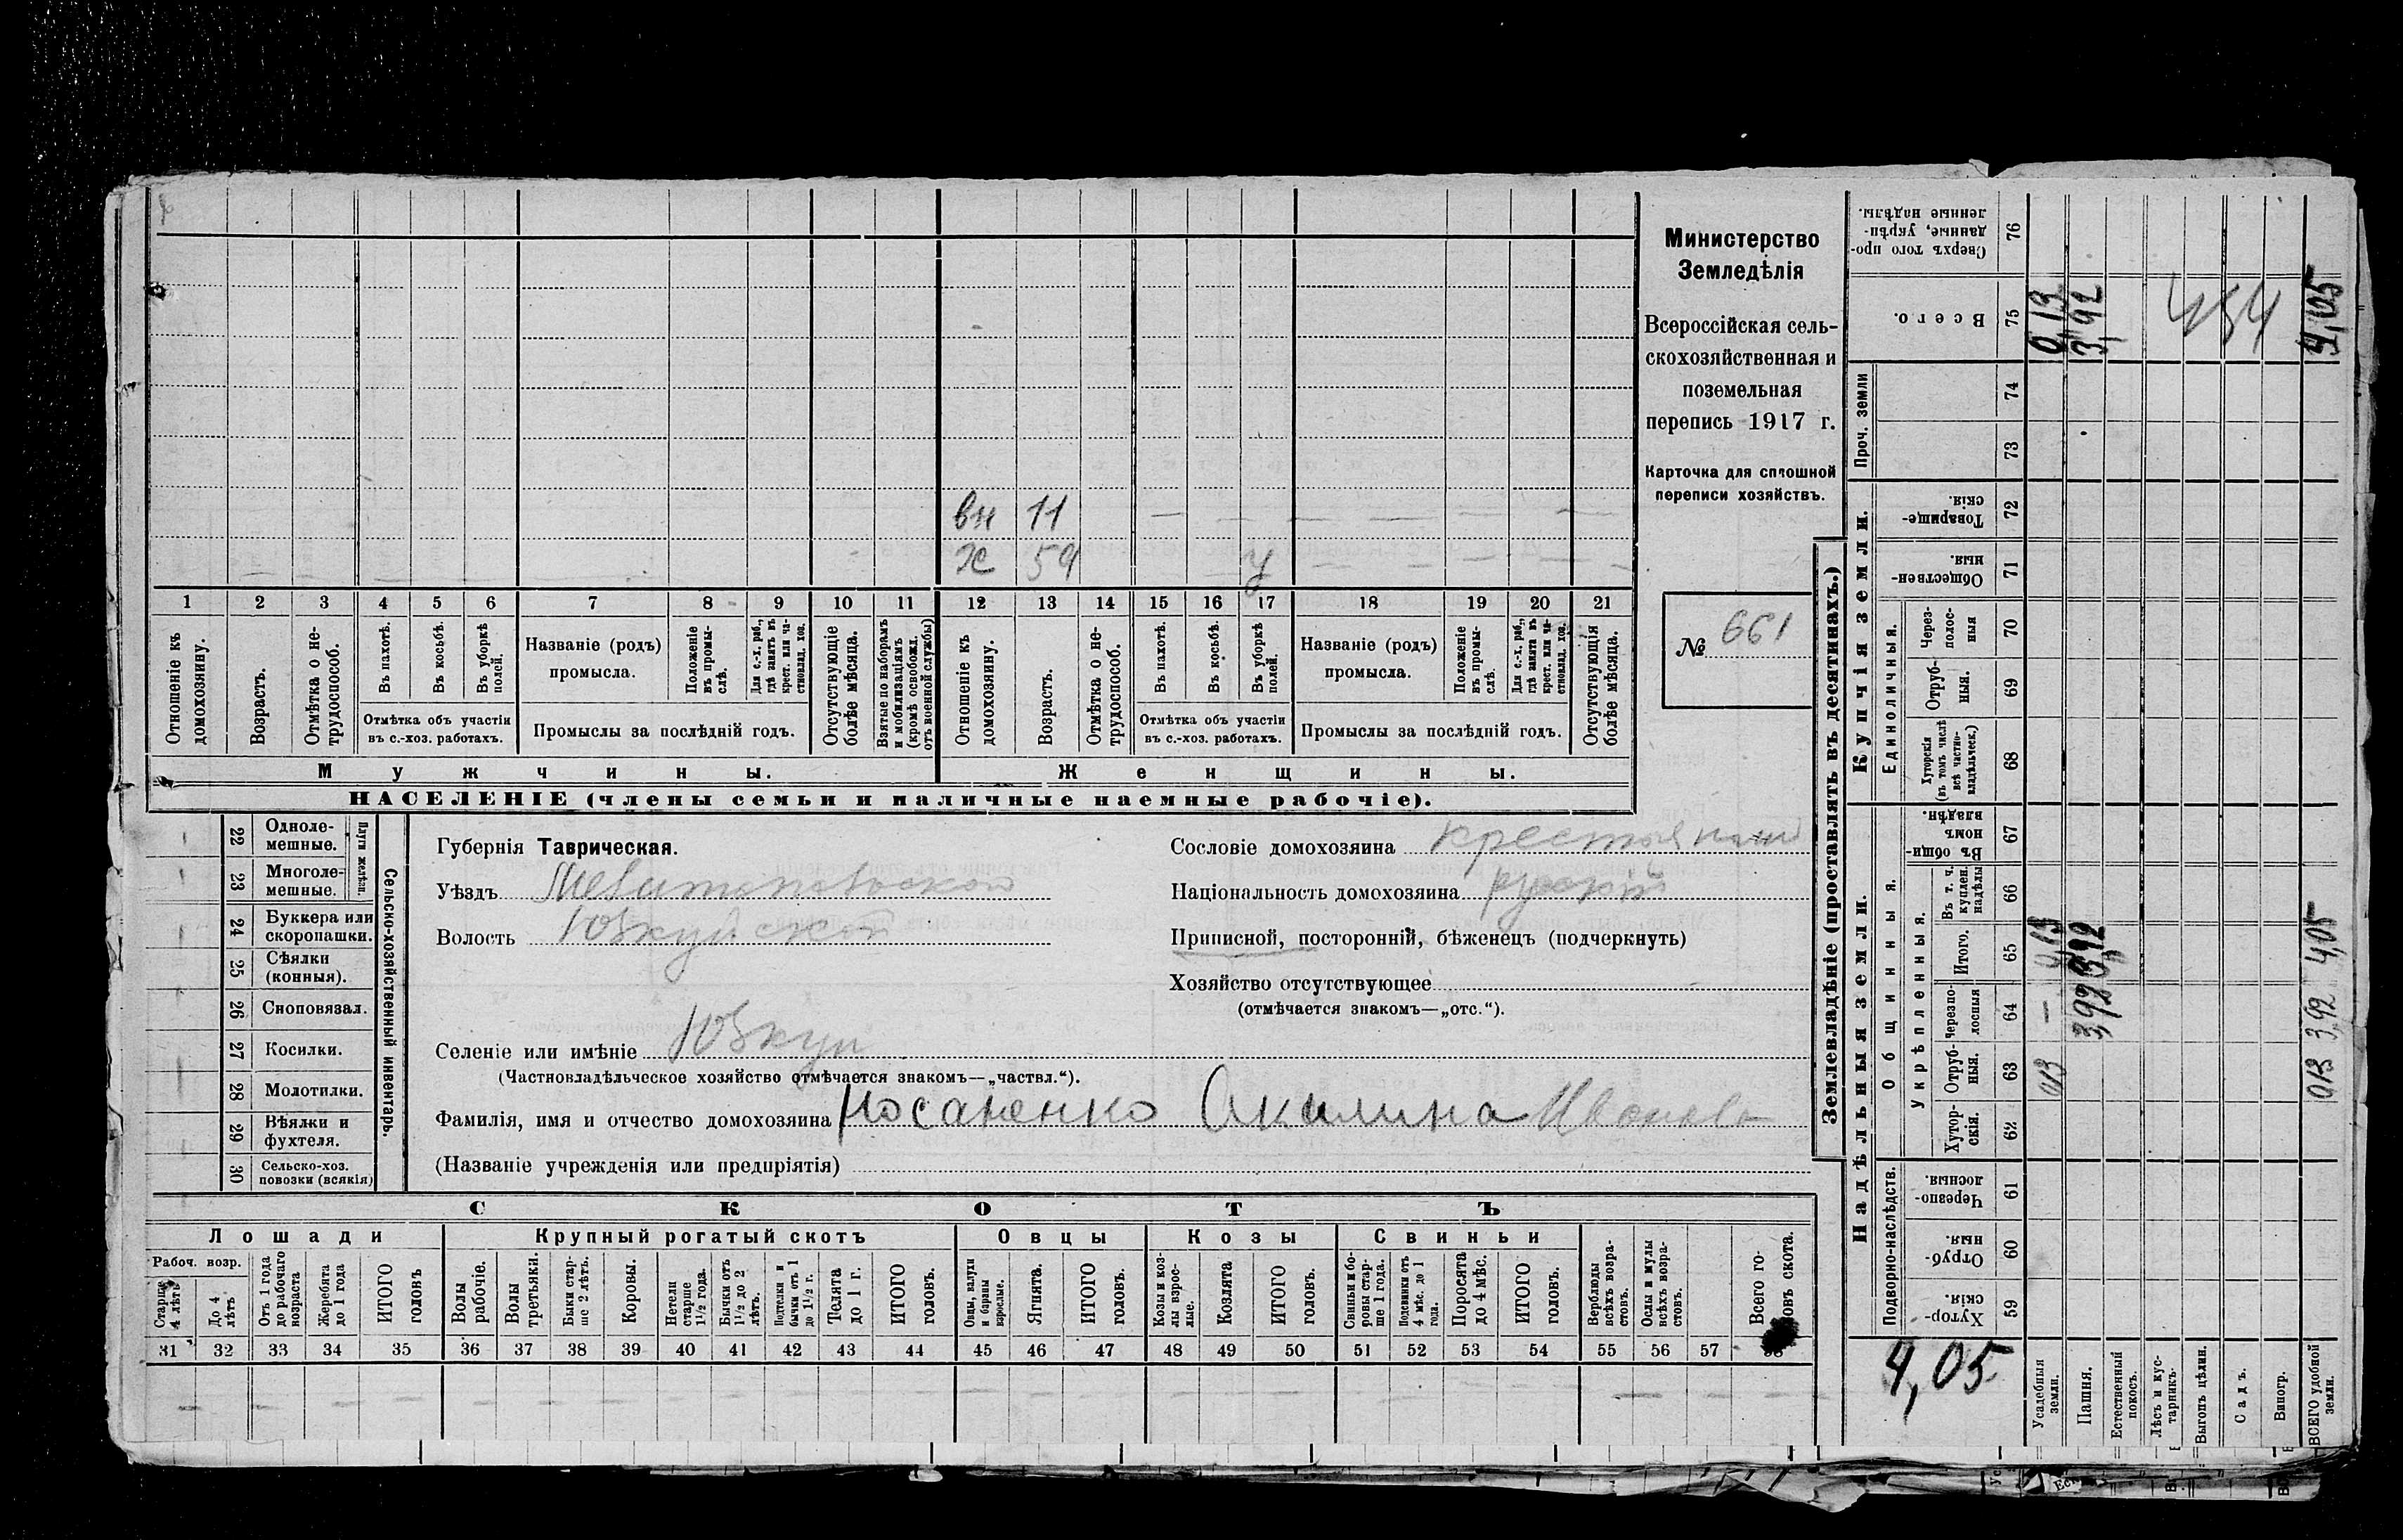 вн 11 — — — — — — —
х 54 — у — — — —
1 2 3 4 5 6 7 8 9 10 11 12 13 14 15 16 17 18 19 20 21
Отношеніе къ домохозяину.
Возрастъ.
Отмѣтка о не-трудоспособ.
Въ пахотѣ.
Въ косьбѣ.
Въ уборкѣ полей.
Отмѣтка объ участіи
въ с.-хоз. работахъ.
Названіе (родъ)
промысла.
Положеніе въ промы-слѣ.
Для с.-х. раб., гдѣ занятъ въ крест. или ча-стновлад. хоз.
Промыслы за послѣдній годъ.
Отсутствующіе болѣе мѣсяца.
Взятые по наборамъ и мобилизаціямъ (кромѣ освобожд. отъ военной службы)
Отношеніе къ домохозяину.
Возрастъ.
Отмѣтка о не-трудоспособ.
Въ пахотѣ.
Въ косьбѣ.
Въ уборкѣ полей.
Отмѣтка объ участіи
въ с.-хоз. работахъ.
Названіе (родъ)
промысла.
Положеніе въ промы-слѣ.
Для с.-х. раб., гдѣ занята въ крест. или ча-стновлад. хоз.
Промыслы за послѣдній годъ.
Отсутствующія болѣе мѣсяца.
Мужчины. Женщины.
НАСЕЛЕНІЕ (члены семьи и наличные наемные рабочіе).
Министерство
Земледѣлія
Всероссійская сель-
скохозяйственная и
поземельная
перепись 1917 г.
Карточка для сплошной
переписи хозяйствъ.
№ 661
22 Одноле-мешные.
23 Многоле-мешные.
Плуги желѣзн.
24 Буккера или скоропашки.
25 Сѣялки (конныя).
26 Сноповязал.
27 Косилки.
28 Молотилки.
29 Вѣялки и фухтеля.
30 Сельско-хоз. повозки (всякія)
Сельско-хозяйственный инвентарь.
Губернія Таврическая.
Уѣздъ Мелитопольской
Волость Юзкуйской
Селеніе или имѣніе Юзкуи
(Частновладѣльческое хозяйство отмѣчается знакомъ—„частвл.“).
Фамилія, имя и отчество домохозяина Носаненко Акилина Иванов
(Названіе учрежденія или предпріятія)
Сословіе домохозяина крестьянин
Національность домохозяина русскій
Приписной, посторонній, бѣженецъ (подчеркнуть)
Хозяйство отсутствующее
(отмѣчается знакомъ—„отс.“).
СКОТЪ
Лошади Крупный рогатый скотъ Овцы Козы Свиньи
Рабоч. возр.
Старше 4 лѣтъ
До 4 лѣтъ
Отъ 1 года до рабочаго возраста
Жеребята до 1 года
ИТОГО головъ
Волы рабочіе.
Волы третьяки.
Быки стар-ше 2 лѣтъ.
Коровы.
Нетели старше 1½ года.
Бычки отъ 1½ до 2 лѣтъ.
Подтелки и бычки отъ 1 до 1½ г.
Телята до 1 г.
ИТОГО головъ.
Овцы, валухи и бараны взрослые.
Ягнята.
ИТОГО головъ.
Козы и коз-лы взрос-лые.
Козлята
ИТОГО головъ.
Свиньи и бо-ровы стар-ше 1 года.
Подсвинки отъ 4 мѣс. до 1 года.
Поросята до 4 мѣс.
ИТОГО головъ.
Верблюды всѣхъ возра-стовъ.
Ослы и мулы всѣхъ возра-стовъ.
Всего го-ловъ скота.
31 32 33 34 35 36 37 38 39 40 41 42 43 44 45 46 47 48 49 50 51 52 53 54 55 56 57 58
Землевладѣніе (проставлять въ десятинахъ.)
Надѣльныя земли.
Купчія земли.
Проч. земли
Подворно-наслѣдств.
Общинныя.
Укрѣпленныя.
Единоличныя.
Хутор-скія. 59
Отруб-ныя. 60
Черезпо-лосныя. 61
Хутор-скія. 62
Отруб-ныя. 63
Черезпо-лосныя 64
Итого. 65
Въ т. ч. куплен. надѣлы 66
Въ общин-номъ владѣн. 67
Хуторскія (въ томъ числѣ всѣ частно-владѣльческ.) 68
Отруб-ныя. 69
Через-полос-ныя 70
Обществен-ныя. 71
Товарище-скія. 72
73
74
Всего. 75
Сверхъ того про-данные, укрѣп-ленные надѣлы. 76
4,05
Усадебныя земли. 013 — 0,13 0,13
Пашня. 3,92 3,92 3,92
Естественный покосъ.
Лѣсъ и кус-тарникъ.
Выгонъ цѣлин.
Садъ.
Виногр.
454
ВСЕГО удобной земли. 013 3,92 4,05 4,05